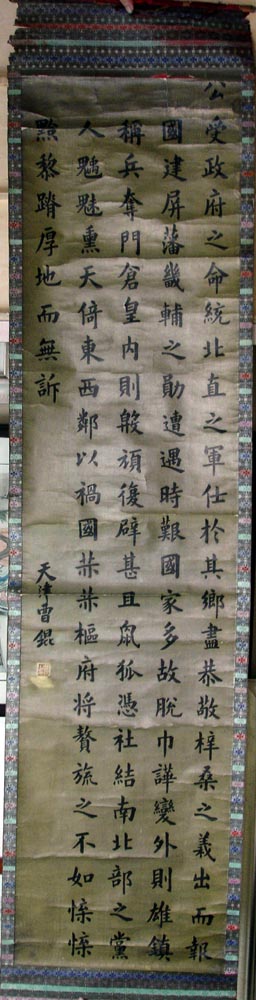 公受政府之命統北直之軍仕於其鄉盡恭敬梓桑之義出而報
國建屏藩畿輔之勛遭遇時艱國家多故脫巾譁變外則雄鎮
稱兵奪門倉皇內則般頑復辟甚且鼠狐憑社結南北部之黨
人魑魅熏天倚東西鄰以禍國茶茶樞府將贅旒之不如慄慄
黔黎蹐厚地而無訴
天津曹錕